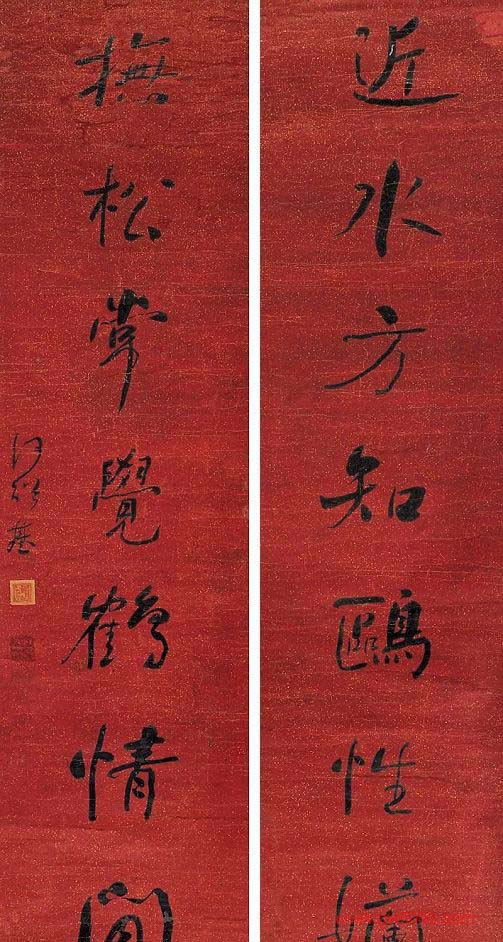 近水方知鷗性
撫松常覺鶴情
何紹基